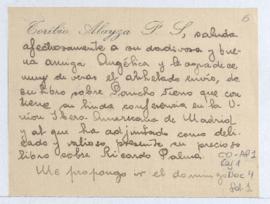 6
Toribio Alayza P S, saluda
afectuosamente a su dadivosa y bue-
na amiga Angélica y la agradece
muy de veras el anhelado envío, de
su libro sobre Pancho Fierro que con
tiene su linda conferencia en la U-
nion Ibero Americana de Madrid
y al que ha adjuntado como deli-
cado y valioso presente su precioso
libro sobre Ricardo Palma.
Me propongo ir el domingo
CO-AP1
Caj 4
Doc 4
Fol. 1